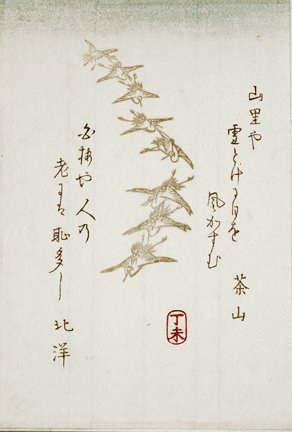 山里や
雪とけ日を
風かすむ
茶山
白梅や人の
老は恥多し
北洋
丁未